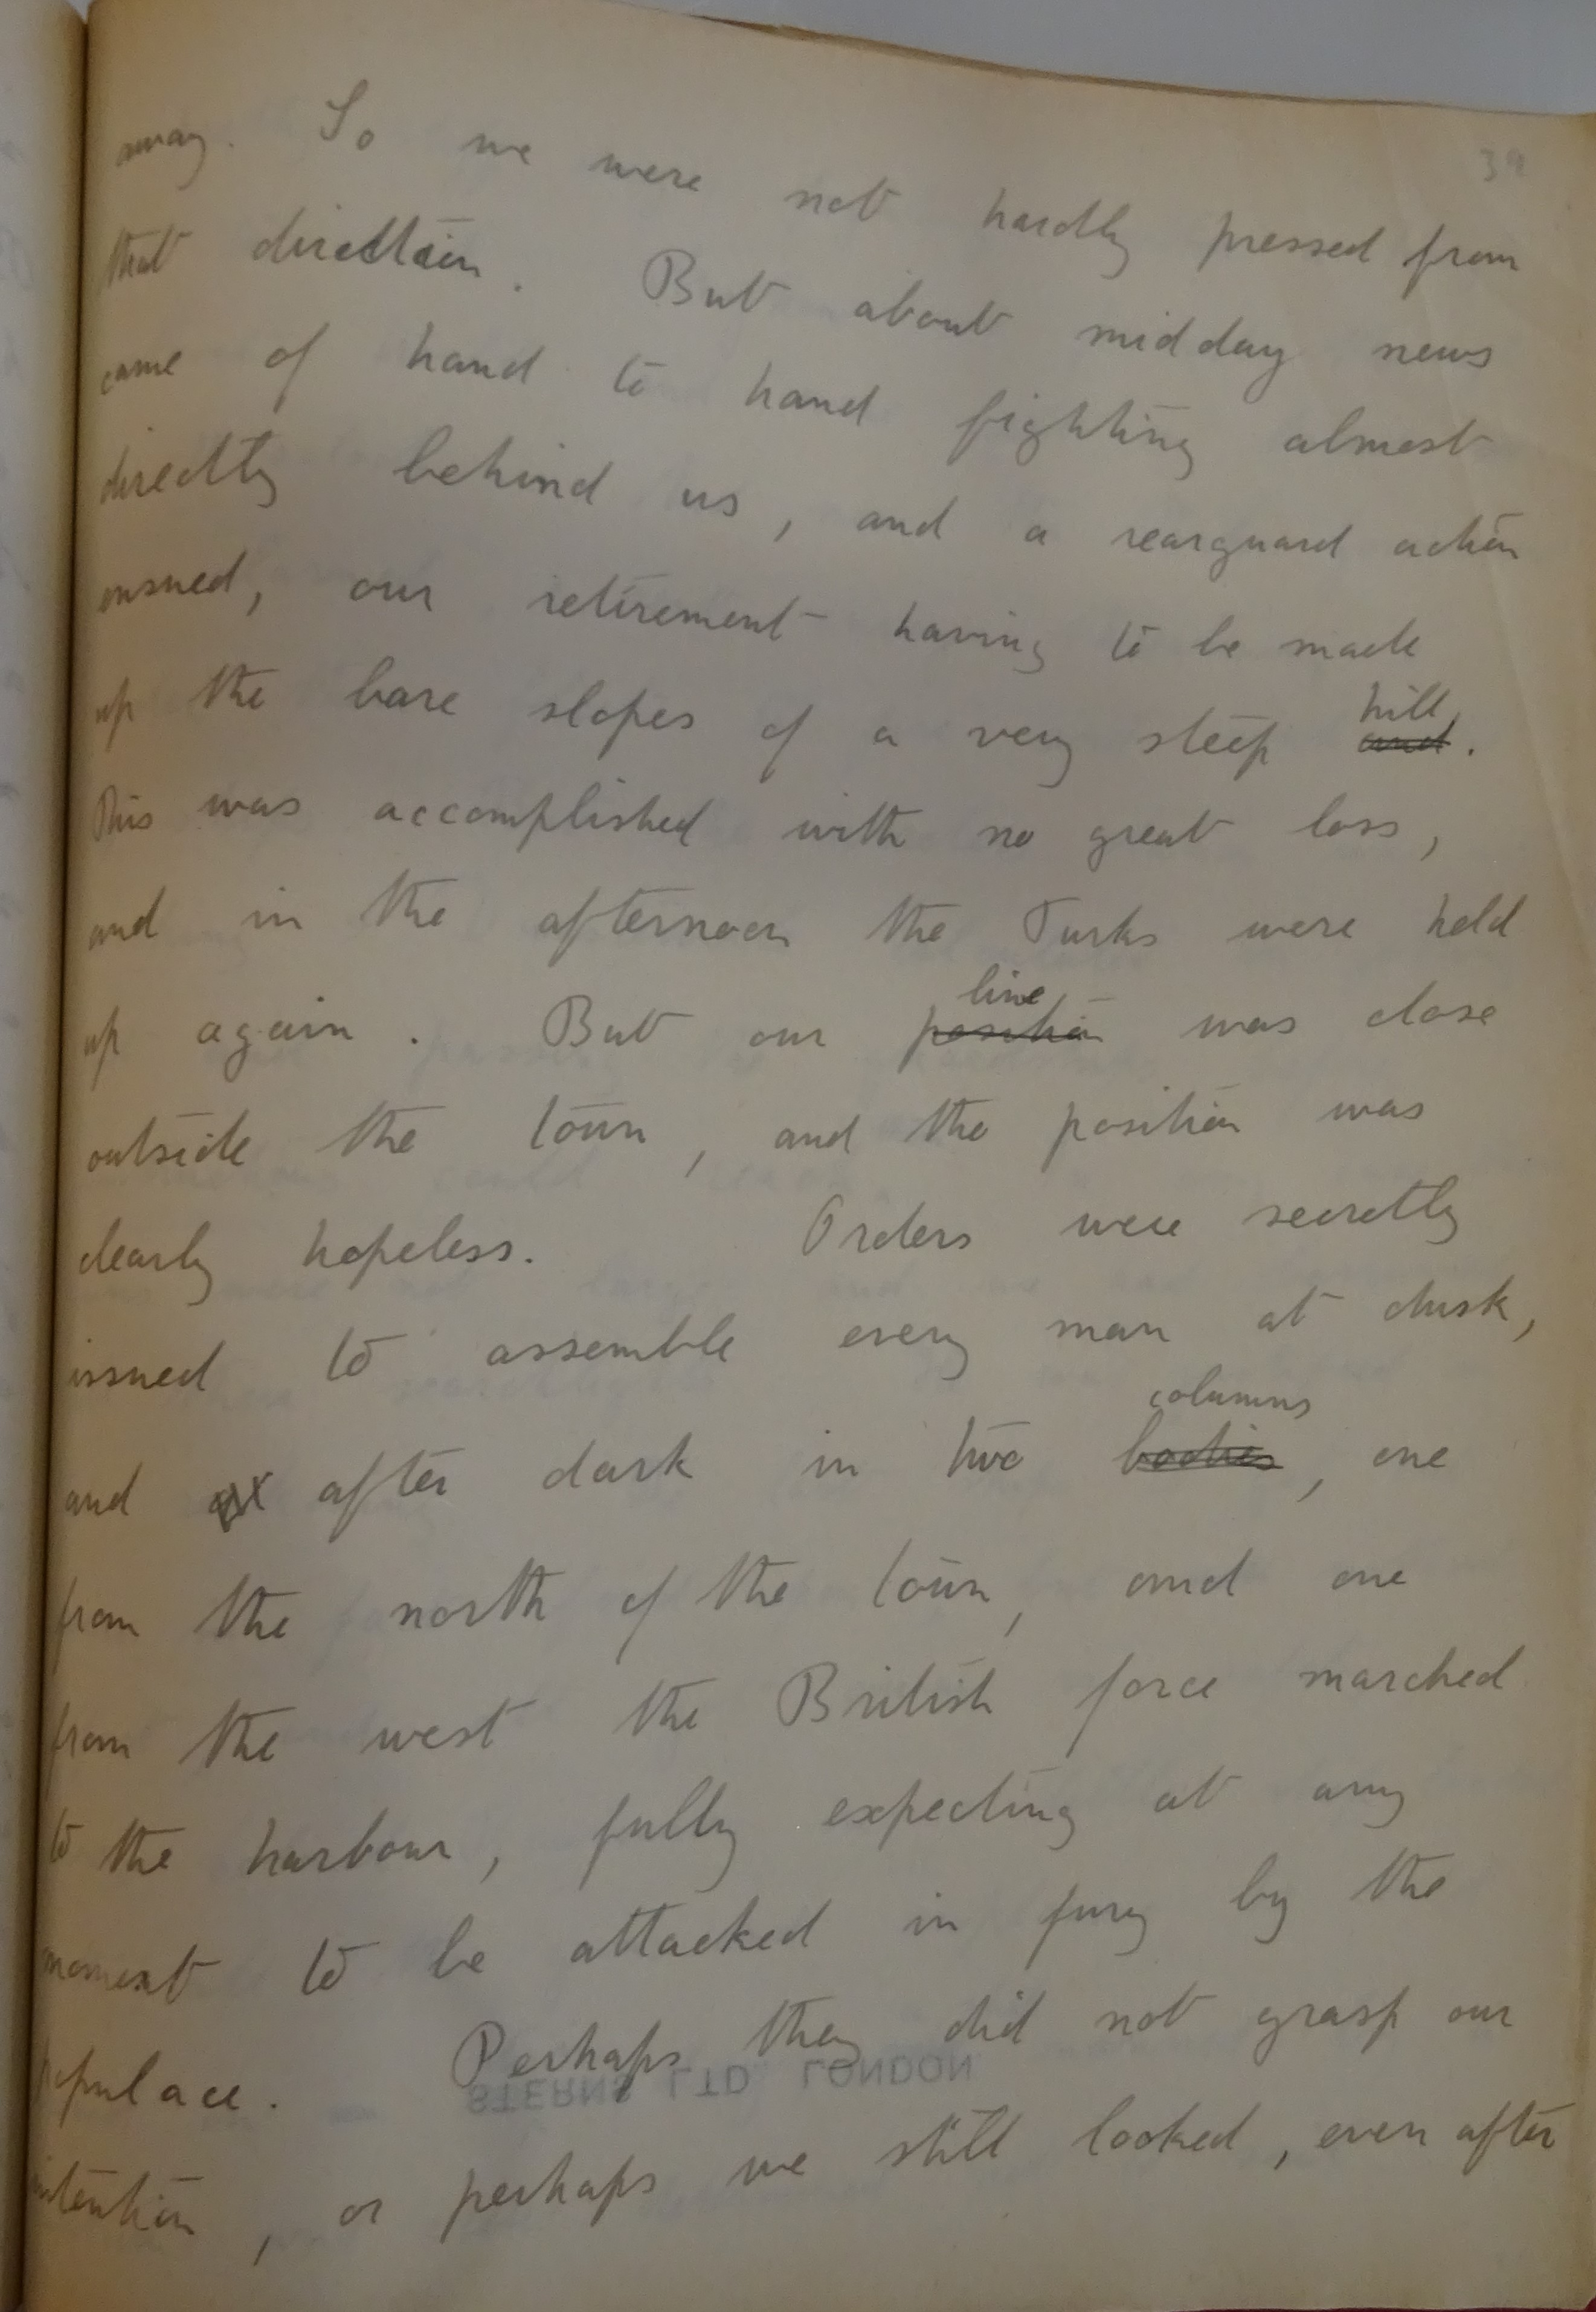 39
away. So we were not hardly pressed from
that direction. But about midday news
came of hand to hand fighting almost
directly behind us, and a rearguard action
ensued, our retirement having to be made
up the bare slopes of a very steep and hill.
This was accomplished with no great loss,
and in the afternoon the Turks were held
up again. But our position line was close
outside the town, and the position was
clearly hopeless. Orders were secretly
issued to assemble every man at dusk,
and after dark in two bodies columns, one
from the north of the town, and one
from the west the British force marched
to the harbour, fully expecting at any
moment to be attacked in fury by the
populace. Perhaps they did not grasp our
STERNS LTD LONDON
intention, or perhaps we still looked, even after